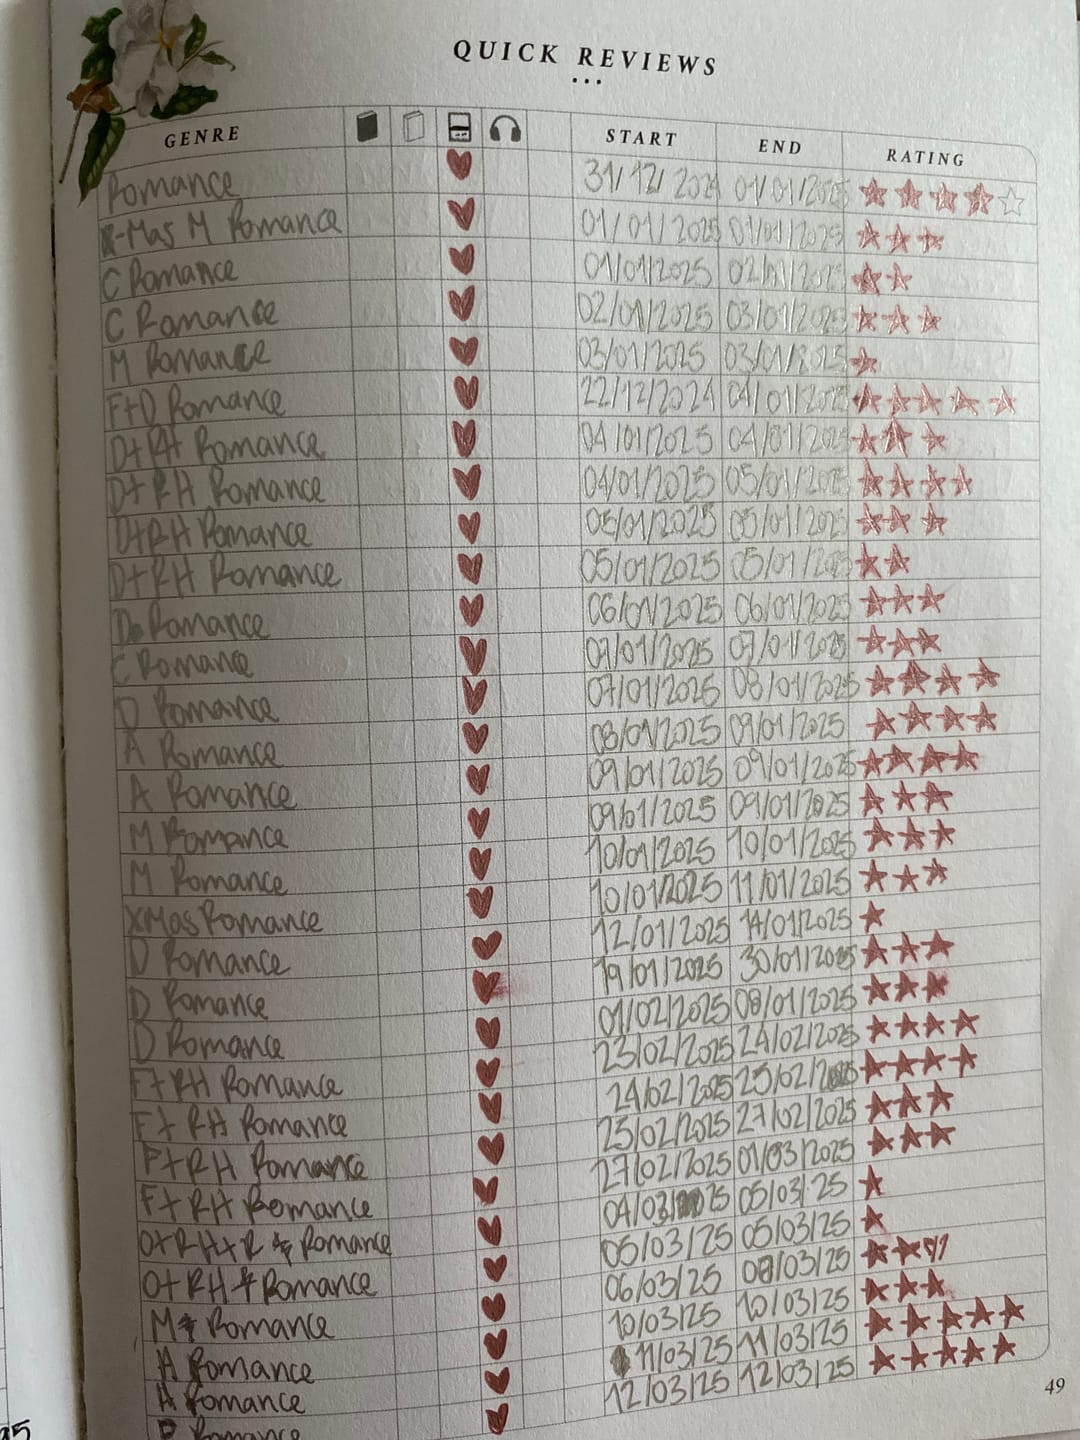 QUICK REVIEWS
GENRE START END RATING
Romance 31/12/2024 01/01/2025
X-Mas M Romance 01/01/2025 01/01/2025
C Romance 01/01/2025 02/01/2025
C Romance 02/01/2025 03/01/2025
M Romance 03/01/2025 03/01/2025
F+D Romance 22/12/2024 04/01/2025
D+RH Romance 04/01/2025 04/01/2025
D+RH Romance 04/01/2025 05/01/2025
D+RH Romance 05/01/2025 05/01/2025
D+RH Romance 05/01/2025 05/01/2025
D Romance 06/01/2025 06/01/2025
C Romance 07/01/2025 07/01/2025
D Romance 07/01/2025 08/01/2025
A Romance 08/01/2025 09/01/2025
A Romance 09/01/2025 09/01/2025
M Romance 09/01/2025 09/01/2025
M Romance 10/01/2025 10/01/2025
XMas Romance 10/01/2025 11/01/2025
D Romance 12/01/2025 14/01/2025
D Romance 19/01/2025 30/01/2025
D Romance 01/02/2025 08/01/2025
F+RH Romance 23/02/2025 24/02/2025
F+RH Romance 24/02/2025 25/02/2025
F+RH Romance 25/02/2025 27/02/2025
F+RH Romance 27/02/2025 01/03/2025
O+RH+R Romance 04/03/25 05/03/25
O+RH+Romance 05/03/25 05/03/25
M Romance 06/03/25 08/03/25
A Romance 10/03/25 10/03/25
A Romance 11/03/25 11/03/25
Romance 12/03/25 12/03/25
49